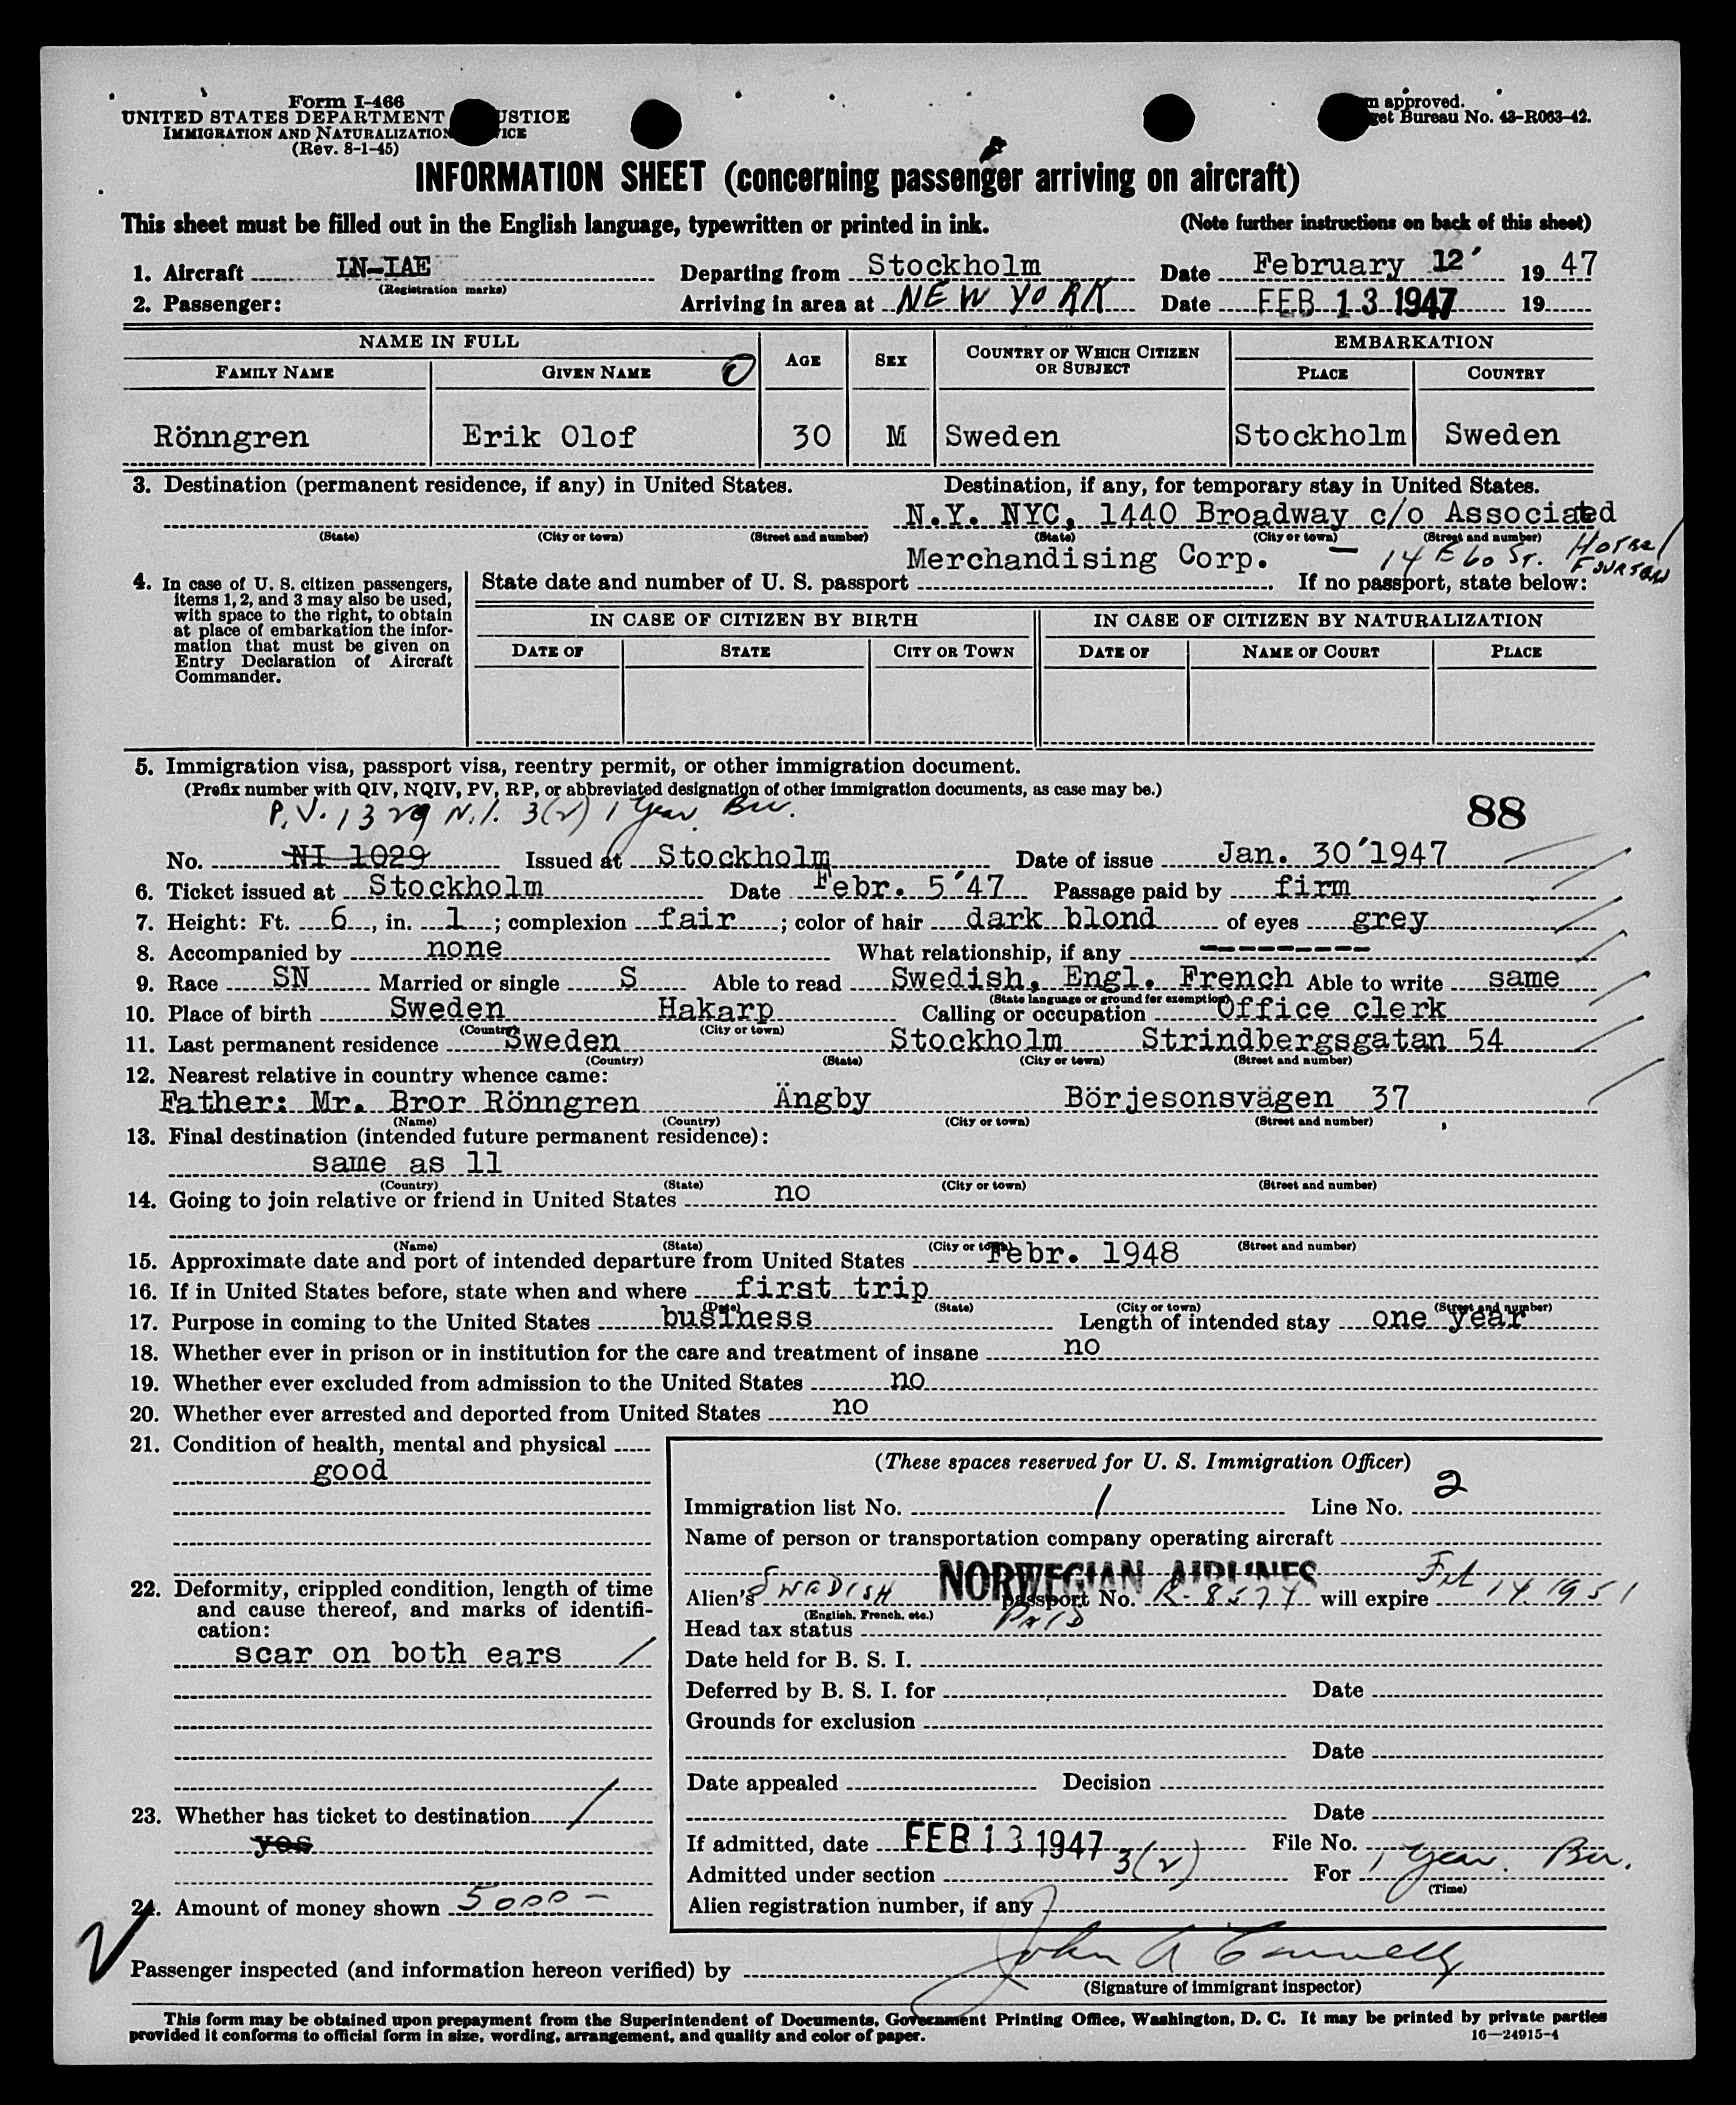 Form I-466
UNITED STATES DEPARTMENT USTICE
IMMIGRATION AND NATURALIZATION ICE
(Rev. 8-1-45)
m approved.
get Bureau No. 43-R063-42.
INFORMATION SHEET (concerning passenger arriving on aircraft)
This sheet must be filled out in the English language, typewritten or printed in ink.
(Note further instructions on back of this sheet)
1. Aircraft LN-IAE Departing from Stockholm Date February 12' 1947
(Registration marks)
2. Passenger: Arriving in area at NEW YORK Date FEB 13 1947 19
NAME IN FULL
EMBARKATION
FAMILY NAME GIVEN NAME AGE SEX COUNTRY OF WHICH CITIZEN OR SUBJECT PLACE COUNTRY
Rönngren Erik Olof 30 M Sweden Stockholm Sweden
3. Destination (permanent residence, if any) in United States. Destination, if any, for temporary stay in United States.
N.Y. NYC, 1440 Broadway c/o Associated
(State) (City or town) (Street and number) (State) (City or town) (Street and number)
Merchandising Corp. — 14 E 60 St. HOTEL
4. In case of U. S. citizen passengers, items 1, 2, and 3 may also be used, with space to the right, to obtain at place of embarkation the information that must be given on Entry Declaration of Aircraft Commander.
State date and number of U. S. passport If no passport, state below:
IN CASE OF CITIZEN BY BIRTH IN CASE OF CITIZEN BY NATURALIZATION
DATE OF STATE CITY OR TOWN DATE OF NAME OF COURT PLACE
5. Immigration visa, passport visa, reentry permit, or other immigration document.
(Prefix number with QIV, NQIV, PV, RP, or abbreviated designation of other immigration documents, as case may be.)
P.V. 1329 N.I. 3(2) 1 Year. Bus.
88
No. NI 1029 Issued at Stockholm Date of issue Jan. 30'1947
6. Ticket issued at Stockholm Date Febr. 5'47 Passage paid by firm
7. Height: Ft. 6, in. 1; complexion fair; color of hair dark blond of eyes grey
8. Accompanied by none What relationship, if any ---------
9. Race SN Married or single S Able to read Swedish, Engl. French Able to write same
(State language or ground for exemption)
10. Place of birth Sweden Hakarp Calling or occupation Office clerk
(Country) (City or town)
11. Last permanent residence Sweden Stockholm Strindbergsgatan 54
(Country) (State) (City or town) (Street and number)
12. Nearest relative in country whence came:
Father: Mr. Bror Rönngren Ängby Börjesonsvägen 37
(Name) (Country) (City or town) (Street and number)
13. Final destination (intended future permanent residence):
same as 11
(Country) (State) (City or town) (Street and number)
14. Going to join relative or friend in United States no
(Name) (State) (City or town) (Street and number)
15. Approximate date and port of intended departure from United States Febr. 1948
16. If in United States before, state when and where first trip
(Date) (State) (City or town) (Street and number)
17. Purpose in coming to the United States business Length of intended stay one year
18. Whether ever in prison or in institution for the care and treatment of insane no
19. Whether ever excluded from admission to the United States no
20. Whether ever arrested and deported from United States no
21. Condition of health, mental and physical
good
22. Deformity, crippled condition, length of time and cause thereof, and marks of identification:
scar on both ears
23. Whether has ticket to destination
yes
24. Amount of money shown 5000 –
(These spaces reserved for U. S. Immigration Officer)
Immigration list No. 1 Line No. 2
Name of person or transportation company operating aircraft
NORWEGIAN AIRLINES
Alien's SWEDISH passport No. R-8577 will expire Feb 14 1951
(English, French, etc.)
Head tax status PAID
Date held for B. S. I.
Deferred by B. S. I. for Date
Grounds for exclusion
Date
Date appealed Decision
Date
If admitted, date FEB 13 1947 File No.
Admitted under section 3(2) For 1 Year. Bus.
(Time)
Alien registration number, if any
Passenger inspected (and information hereon verified) by John A Connelly
(Signature of immigrant inspector)
This form may be obtained upon prepayment from the Superintendent of Documents, Government Printing Office, Washington, D. C. It may be printed by private parties
provided it conforms to official form in size, wording, arrangement, and quality and color of paper.
16—24915-4